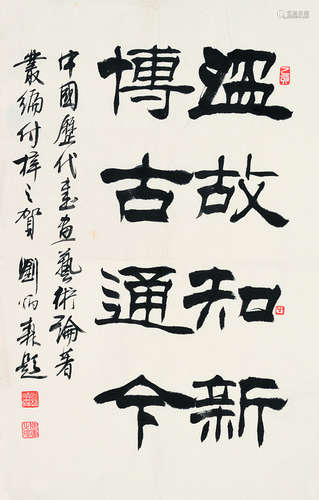 温故知新
博古通今
中國歷代書畫藝術論著
叢編付梓之賀 劉炳森題